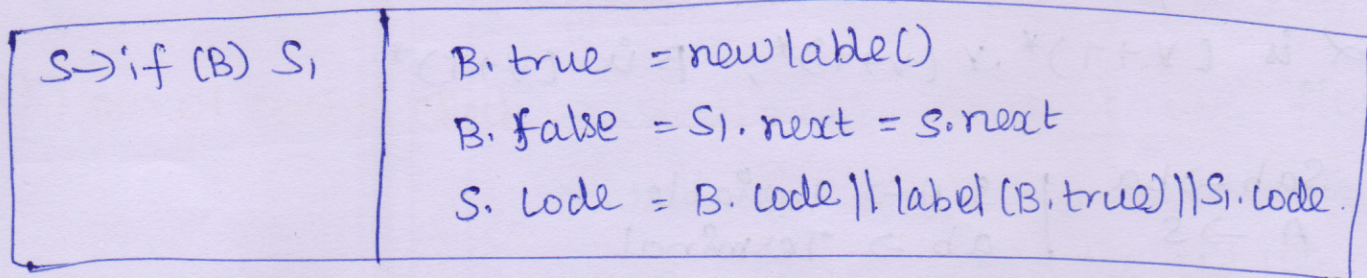 S→if (B) S₁
B. true = newlable()
B. false = S₁. next = S. next
S. code = B. code || label (B. true) || S₁. code.